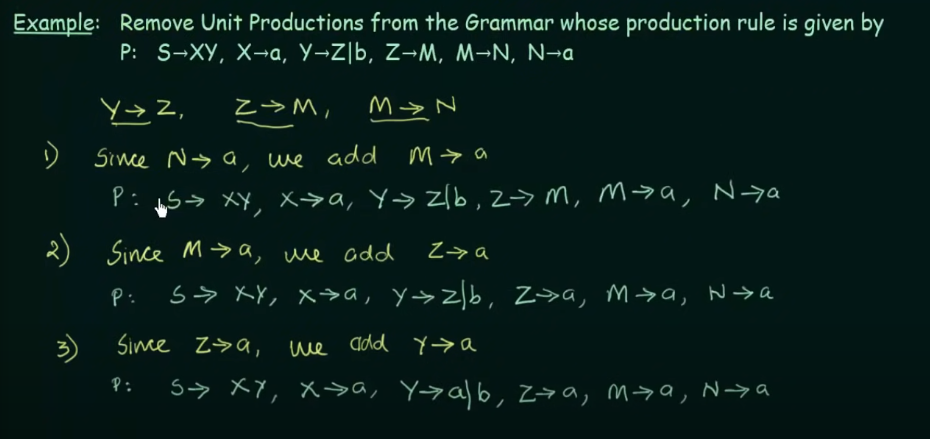 Example: Remove Unit Productions from the Grammar whose production rule is given by
P: S→XY, X→a, Y→Z|b, Z→M, M→N, N→a
Y→Z, Z→M, M→N
1) Since N→a, we add M→a
P: S→ XY, X→a, Y→ Z|b, Z→ M, M→a, N→a
2) Since M→a, we add Z→a
P: S→ XY, X→a, Y→Z|b, Z→a, M→a, N→a
3) Since Z→a, we add Y→a
P: S→ XY, X→a, Y→a|b, Z→a, M→a, N→a